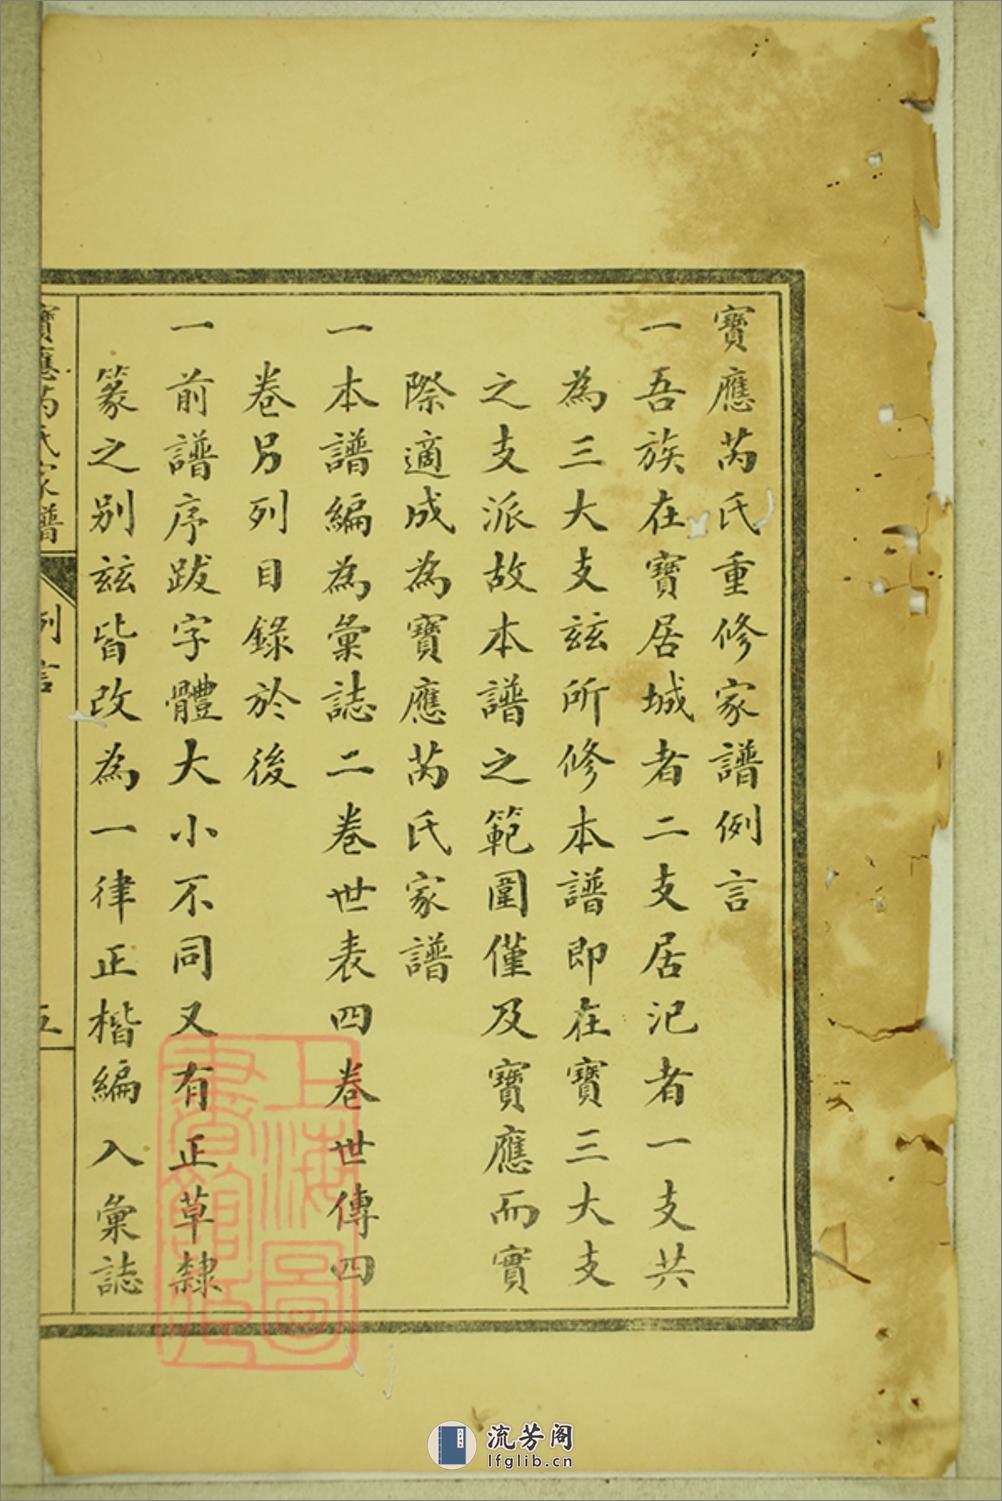 寶應芮氏重修家譜例言
一吾族在寶居城者二支居氾者一支共
為三大支茲所修本譜即在寶三大支
之支派故本譜之範圍僅及寶應而實
際適成為寶應芮氏家譜
一本譜編為彙誌二卷世表四卷世傳四
卷另列目錄於後
一前譜序跋字體大小不同又有正草隸
篆之別茲皆改為一律正楷編入彙誌
寶應芮氏家譜
例言
五
上海圖
書館藏
流芳阁
lfglib.cn